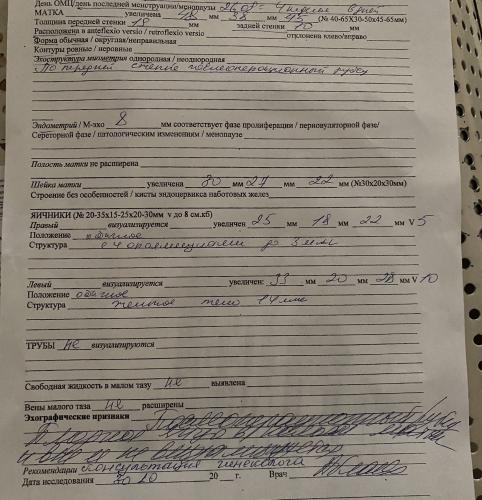 День ОМЦ/день последней менструации/менопаузы 26.09 - 4 недел дней
МАТКА увеличена 48 мм 38 мм 45 (№ 40-65Х30-50х45-65мм)
Толщина передней стенки 18 мм задней стенки 10 мм
Расположена в anteflexio versio / retroflexio versio отклонена влево/вправо
Форма обычная / округлая/неправильная
Контуры ровные / неровные
Экоструктура миометрия однородная / неоднородная
По передней стенке послеоперационный рубец
Эндометрий / М-эхо 8 мм соответствует фазе пролиферации / периовуляторной фазе/
Секреторной фазе / патологическим изменениям / менопаузе
Полость матки не расширена
Шейка матки увеличена 30 мм 27 мм 22 мм (№30х20х30мм)
Строение без особенностей / кисты эндоцервикса наботовых желез
ЯИЧНИКИ (№ 20-35х15-25х20-30мм v до 8 см.кб)
Правый визуализируется увеличен 25 мм 18 мм 22 мм V 5
Положение обычное
Структура с фолликулами до 5 мм
Левый визуализируется увеличен: 33 мм 20 мм 28 мм V 10
Положение обычное
Структура желтое тело 14 мм
ТРУБЫ не визуализируются
Свободная жидкость в малом тазу не выявлена
Вены малого таза не расширены
Эхографические признаки Послеоперационный рубец
матки
не
Рекомендации консультация гинеколога
Дата исследования 20 20 г. Врач